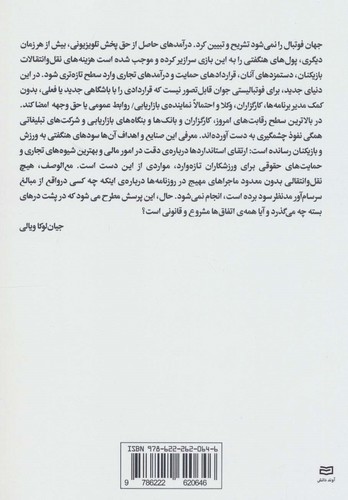 جهان فوتبال را نمی‌شود تشریح و تبیین کرد. درآمدهای حاصل از حق پخش تلویزیونی، بیش از هر زمان
دیگری، پول‌های هنگفتی را به این بازی سرازیر کرده و موجب شده است هزینه‌های نقل‌وانتقالات
بازیکنان، دستمزدهای آنان، قراردادهای حمایت و درآمدهای تجاری وارد سطح تازه‌تری شود. در این
دنیای جدید، برای فوتبالیستی جوان قابل‌تصور نیست که قراردادی را با باشگاهی جدید یا فعلی، بدون
کمک مدیر برنامه‌ها، کارگزاران، وکلا و احتمالاً نماینده‌ی بازاریابی/ روابط عمومی یا حق وجهه امضا کند.
در بالاترین سطح رقابت‌های امروز، کارگزاران و بانک‌ها و بنگاه‌های بازاریابی و شرکت‌های تبلیغاتی
همگی نفوذ چشمگیری به دست آورده‌اند. معرفی این صنایع و اهداف آن‌ها سودهای هنگفتی به ورزش
و بازیکنان رسانده است: ارتقای استانداردها درباره‌ی دقت در امور مالی و بهترین شیوه‌های تجاری و
حمایت‌های حقوقی برای ورزشکاران تازه‌وارد، مواردی از این دست است. مع‌الوصف، هیچ
نقل‌وانتقالی بدون معدود ماجراهای مهیج در روزنامه‌ها درباره‌ی اینکه چه کسی درواقع از مبالغ
سرسام‌آور مدنظر سود برده است، انجام نمی‌شود. حال، این پرسش مطرح می شود که در پشت درهای
بسته چه می‌گذرد و آیا همه‌ی اتفاق‌ها مشروع و قانونی است؟
جیان‌لوکا ویالی
ISBN 978-622-262-064-6
9 786222 620646
آوند دانش